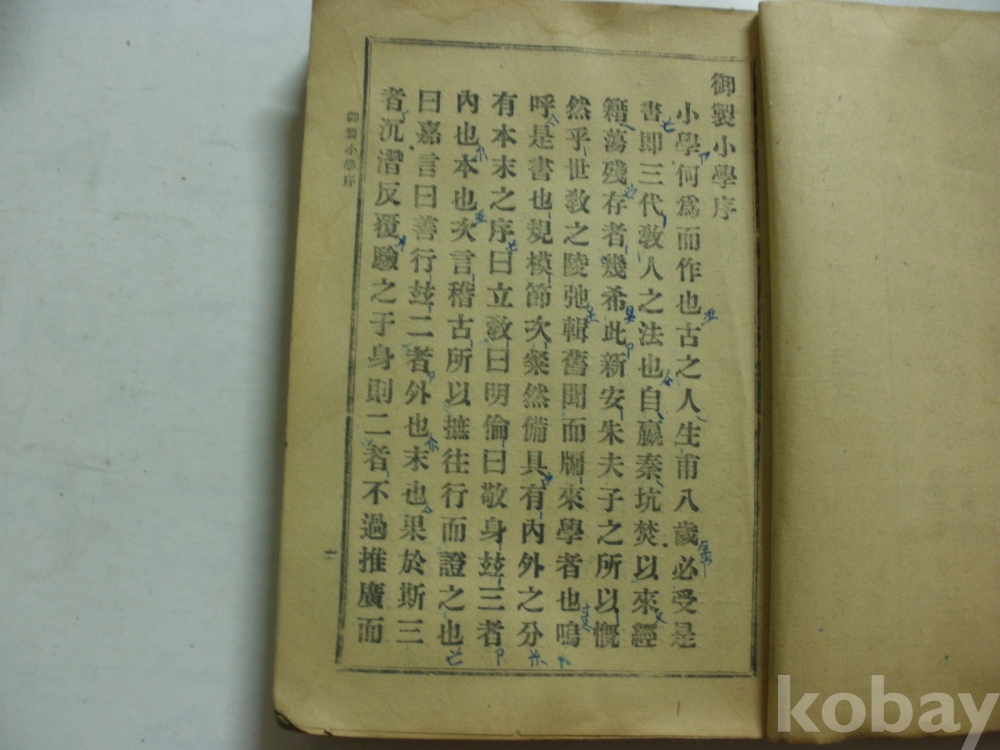 御製小學序
小學何爲而作也古之人生甫八歲必受是
書卽三代敎人之法也自嬴秦坑焚以來經
籍蕩殘存者幾希此新安朱夫子之所以慨
然乎世敎之陵弛輯舊聞而牖來學者也嗚
呼是書也規模節次粲然備具有內外之分
有本末之序曰立敎曰明倫曰敬身玆三者
內也本也次言稽古所以摭往行而證之也
曰嘉言曰善行玆二者外也末也果於斯三
者沉潛反覆驗之于身則二者不過推廣而
御製小學序
一
kobay